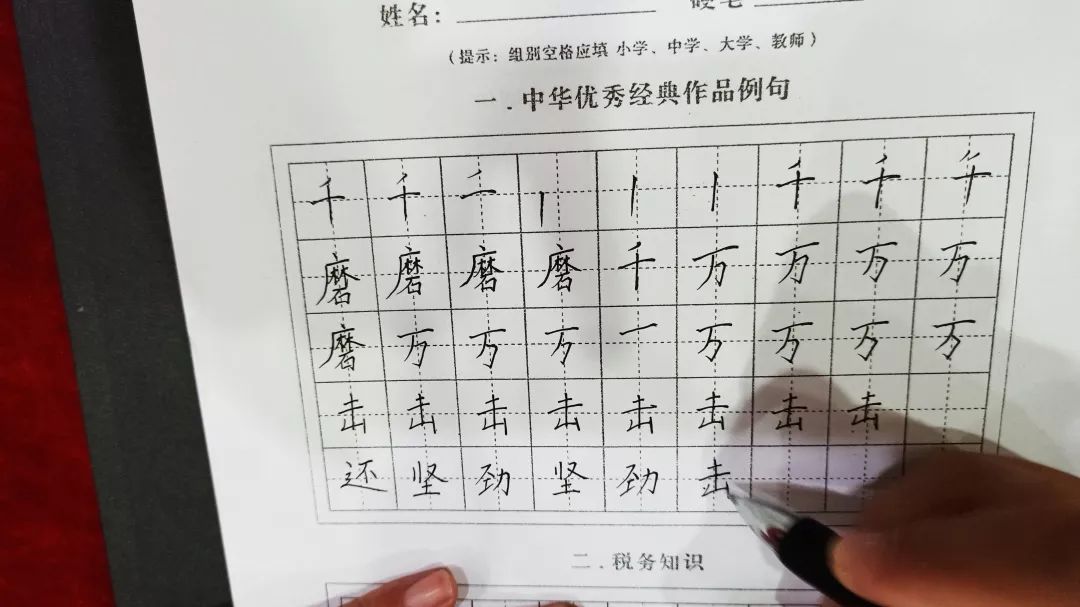 姓名： 硬笔
（提示：组别空格应填 小学、中学、大学、教师）
一．中华优秀经典作品例句
千千千千千
磨磨磨磨千万万万万
磨万万万一万万万万
击击击击击击击击
还坚劲坚劲击
二．税务知识